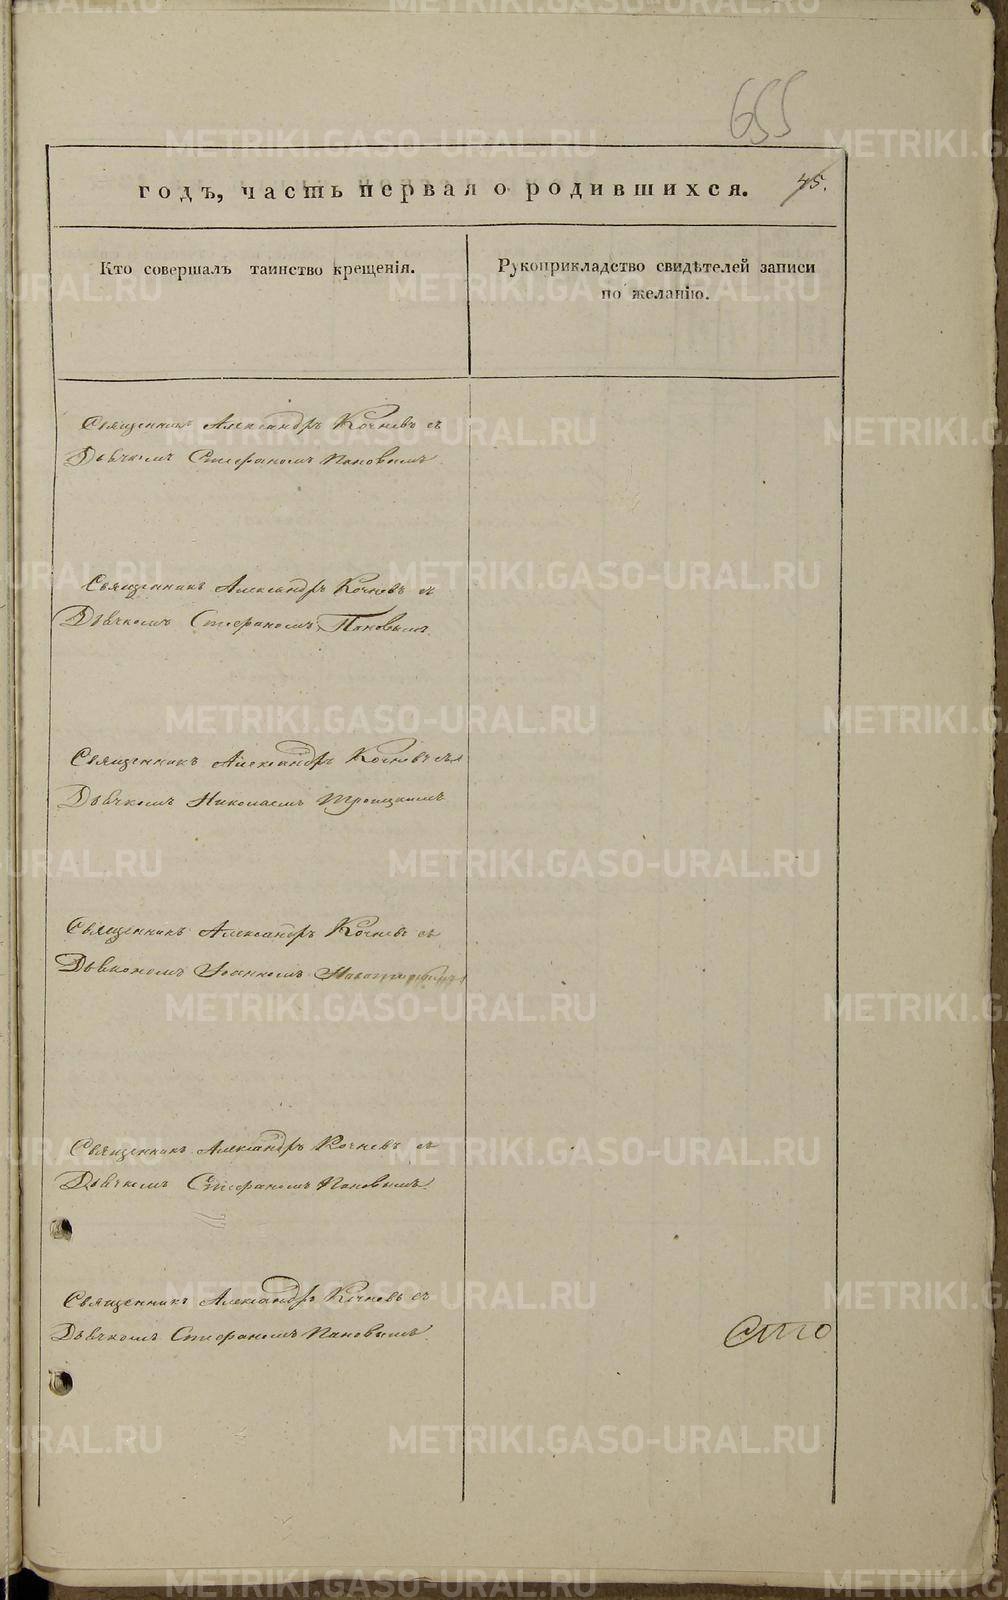 655
годъ, часть первая о родившихся.
45.
Кто совершалъ таинство крещенія.
Рукоприкладство свидѣтелей записи
по желанію.
Священникъ Александръ Кочневъ съ
Дьячкомъ Стефаномъ Пановымъ
Священникъ Александръ Кочневъ съ
Дьячкомъ Стефаномъ Пановымъ.
Священникъ Александръ Кочневъ съ
Дьячкомъ Николаемъ Троицкимъ
Священникъ Александръ Кочневъ съ
Дьякономъ Іоанномъ
Священникъ Александръ Кочневъ съ
Дьячкомъ Стефаномъ Пановымъ.
Священникъ Александръ Кочневъ съ
Дьячкомъ Стефаномъ Пановымъ.
Сто
METRIKI.GASO-URAL.RU